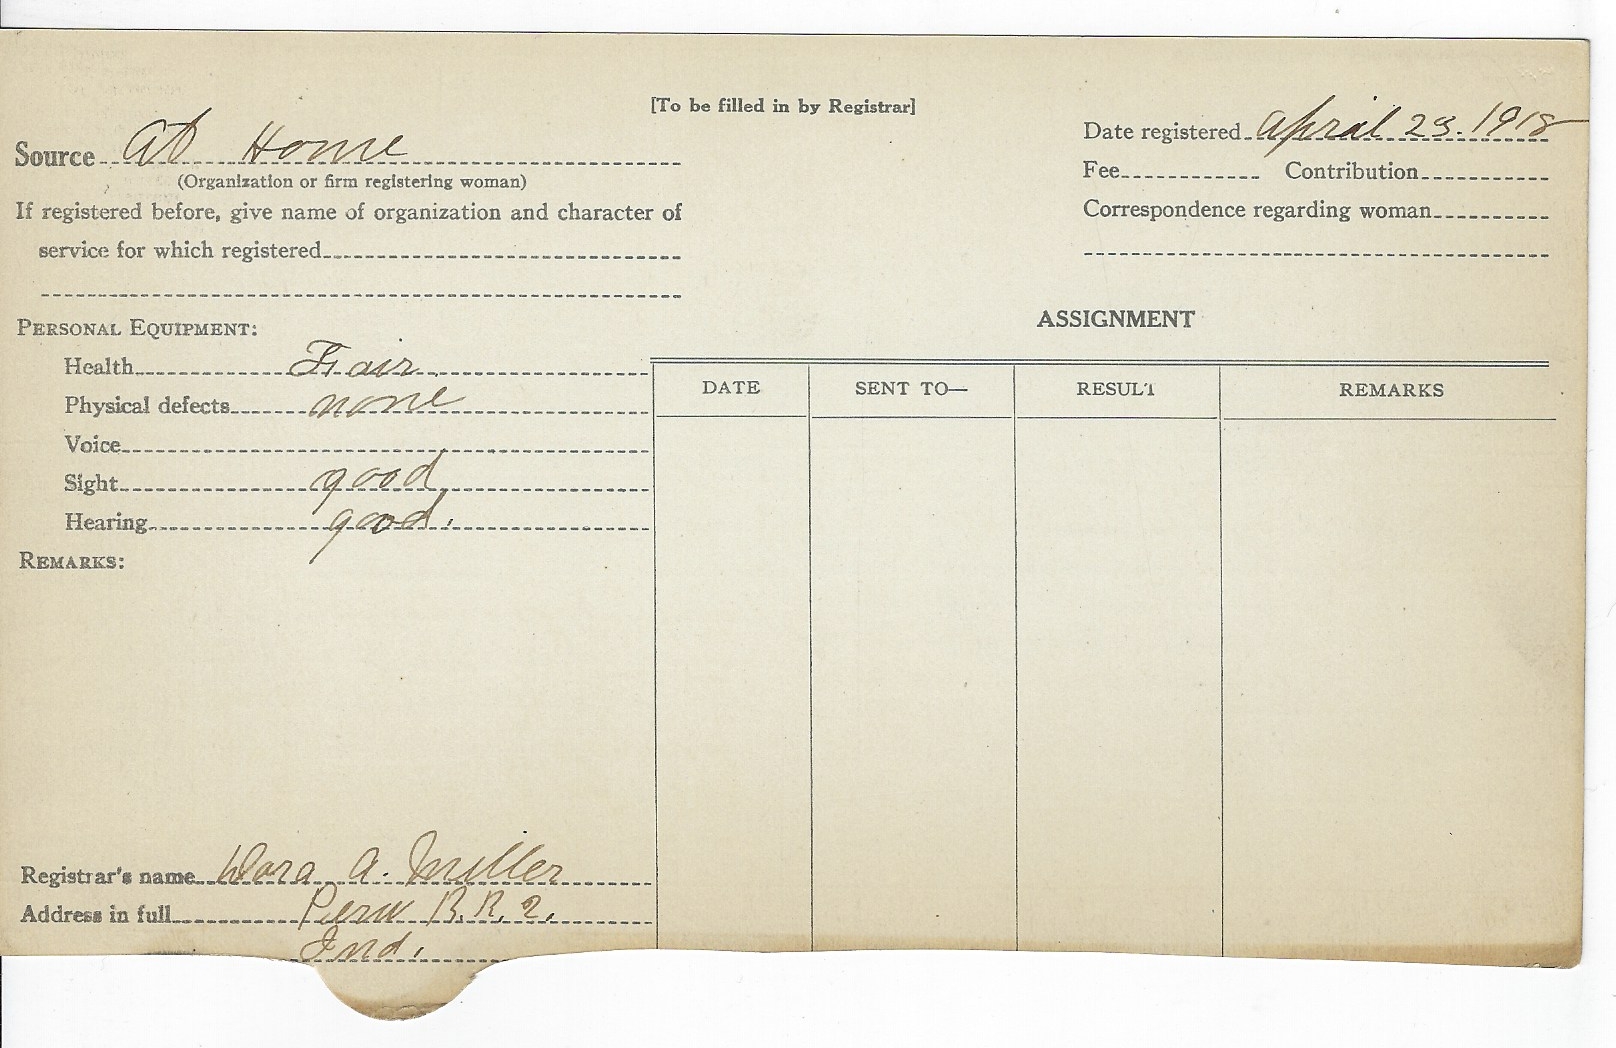 [To be filled in by Registrar]
Source At Home
(Organization or firm registering woman)
If registered before, give name of organization and character of
service for which registered
Date registered April 23. 1918
Fee Contribution
Correspondence regarding woman
PERSONAL EQUIPMENT:
Health Fair
Physical defects none
Voice
Sight good
Hearing good.
REMARKS:
ASSIGNMENT
DATE SENT TO— RESULT REMARKS
Registrar's name Dora A. Miller
Address in full Peru R.R. 2.
Ind.